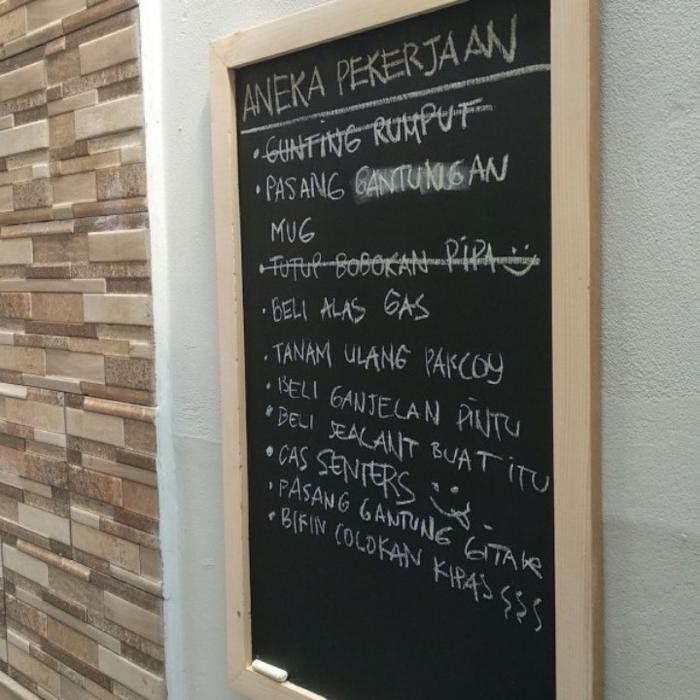 ANEKA PEKERJAAN
• GUNTING RUMPUT
• PASANG GANTUNGAN
MUG
• TUTUP BOBOKAN PIPA
• BELI ALAS GAS
• TANAM ULANG PAKCOY
• BELI GANJELAN PINTU
• BELI SEALANT BUAT ITU
• CAS SENTERS
• PASANG GANTUNG GITAR
• BIKIN COLOKAN KIPAS